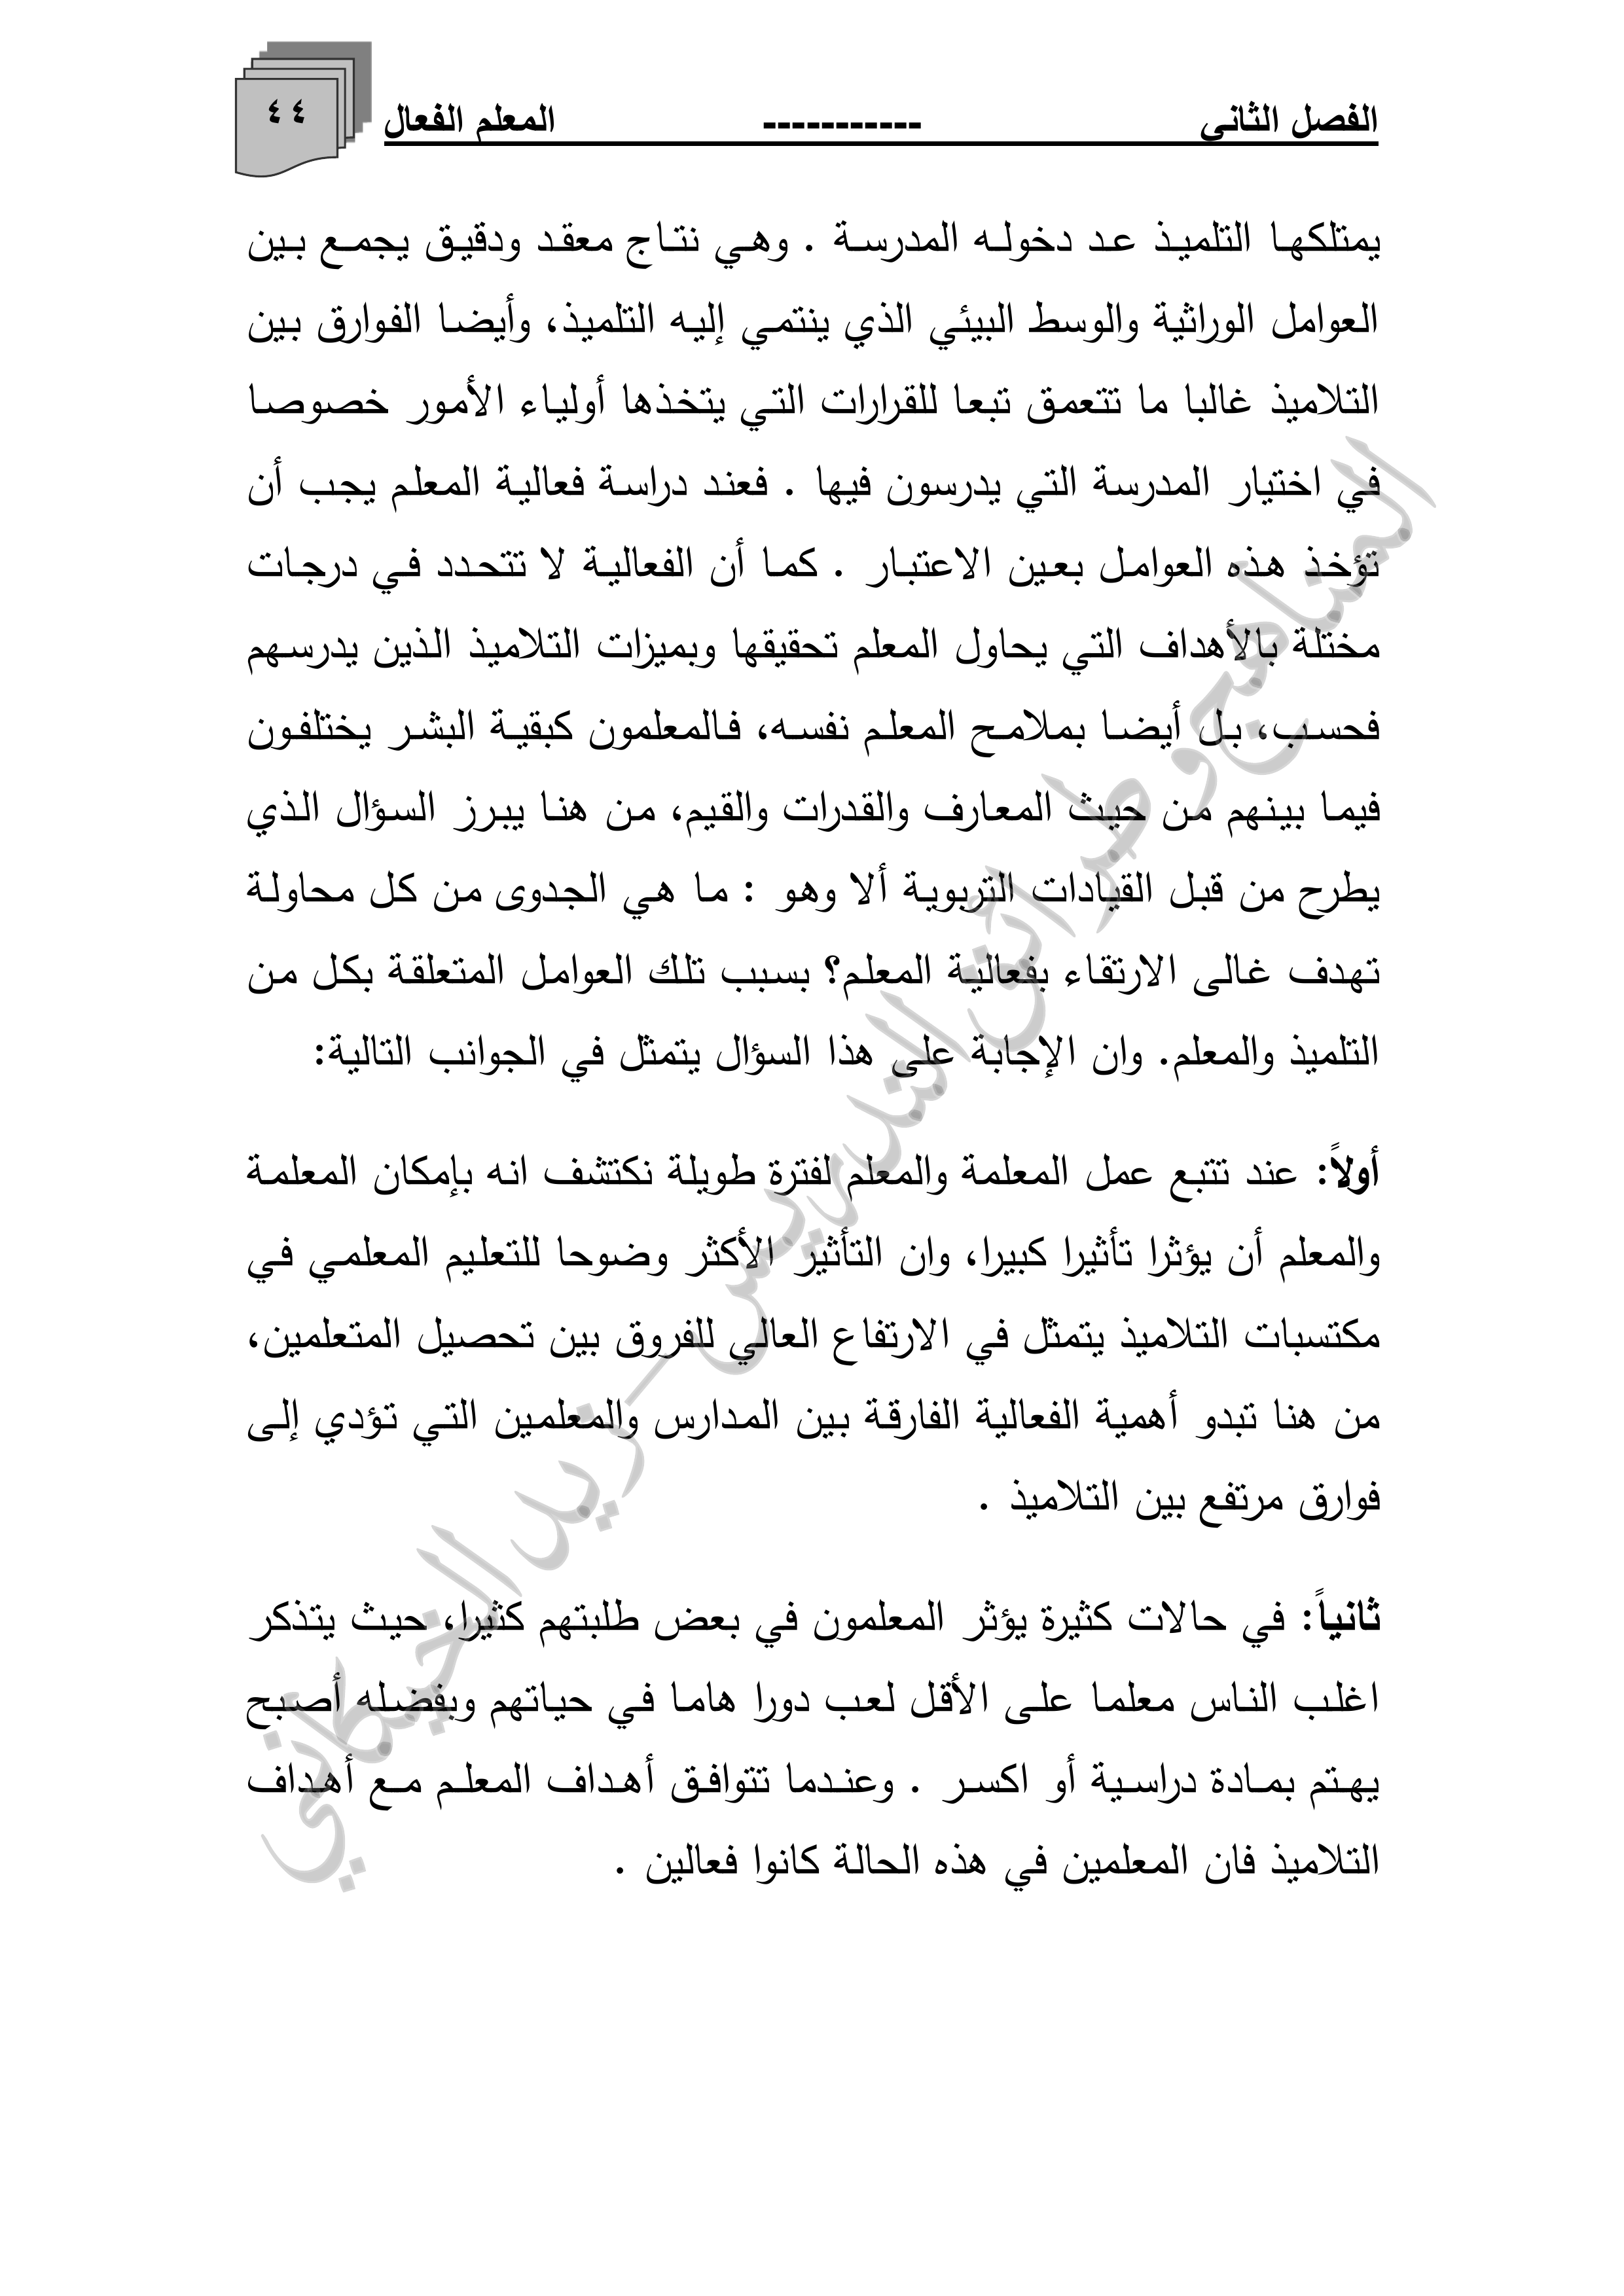 الفصل الثاني ----------- المعلم الفعال
٤٤
يمتلكها التلميذ عد دخوله المدرسة . وهي نتاج معقد ودقيق يجمع بين
العوامل الوراثية والوسط البيئي الذي ينتمي إليه التلميذ، وأيضا الفوارق بين
التلاميذ غالبا ما تتعمق تبعا للقرارات التي يتخذها أولياء الأمور خصوصا
في اختيار المدرسة التي يدرسون فيها . فعند دراسة فعالية المعلم يجب أن
تؤخذ هذه العوامل بعين الاعتبار . كما أن الفعالية لا تتحدد في درجات
مختلة بالأهداف التي يحاول المعلم تحقيقها وبميزات التلاميذ الذين يدرسهم
فحسب، بل أيضا بملامح المعلم نفسه، فالمعلمون كبقية البشر يختلفون
فيما بينهم من حيث المعارف والقدرات والقيم، من هنا يبرز السؤال الذي
يطرح من قبل القيادات التربوية ألا وهو : ما هي الجدوى من كل محاولة
تهدف غالى الارتقاء بفعالية المعلم؟ بسبب تلك العوامل المتعلقة بكل من
التلميذ والمعلم. وان الإجابة على هذا السؤال يتمثل في الجوانب التالية:
أولاً: عند تتبع عمل المعلمة والمعلم لفترة طويلة نكتشف انه بإمكان المعلمة
والمعلم أن يؤثرا تأثيرا كبيرا، وان التأثير الأكثر وضوحا للتعليم المعلمي في
مكتسبات التلاميذ يتمثل في الارتفاع العالي للفروق بين تحصيل المتعلمين،
من هنا تبدو أهمية الفعالية الفارقة بين المدارس والمعلمين التي تؤدي إلى
فوارق مرتفع بين التلاميذ .
ثانياً: في حالات كثيرة يؤثر المعلمون في بعض طلبتهم كثيرا، حيث يتذكر
اغلب الناس معلما على الأقل لعب دورا هاما في حياتهم وبفضله أصبح
يهتم بمادة دراسية أو اكسر . وعندما تتوافق أهداف المعلم مع أهداف
التلاميذ فان المعلمين في هذه الحالة كانوا فعالين .
المناهج وطرائق التدريس – زيد الخيكاني